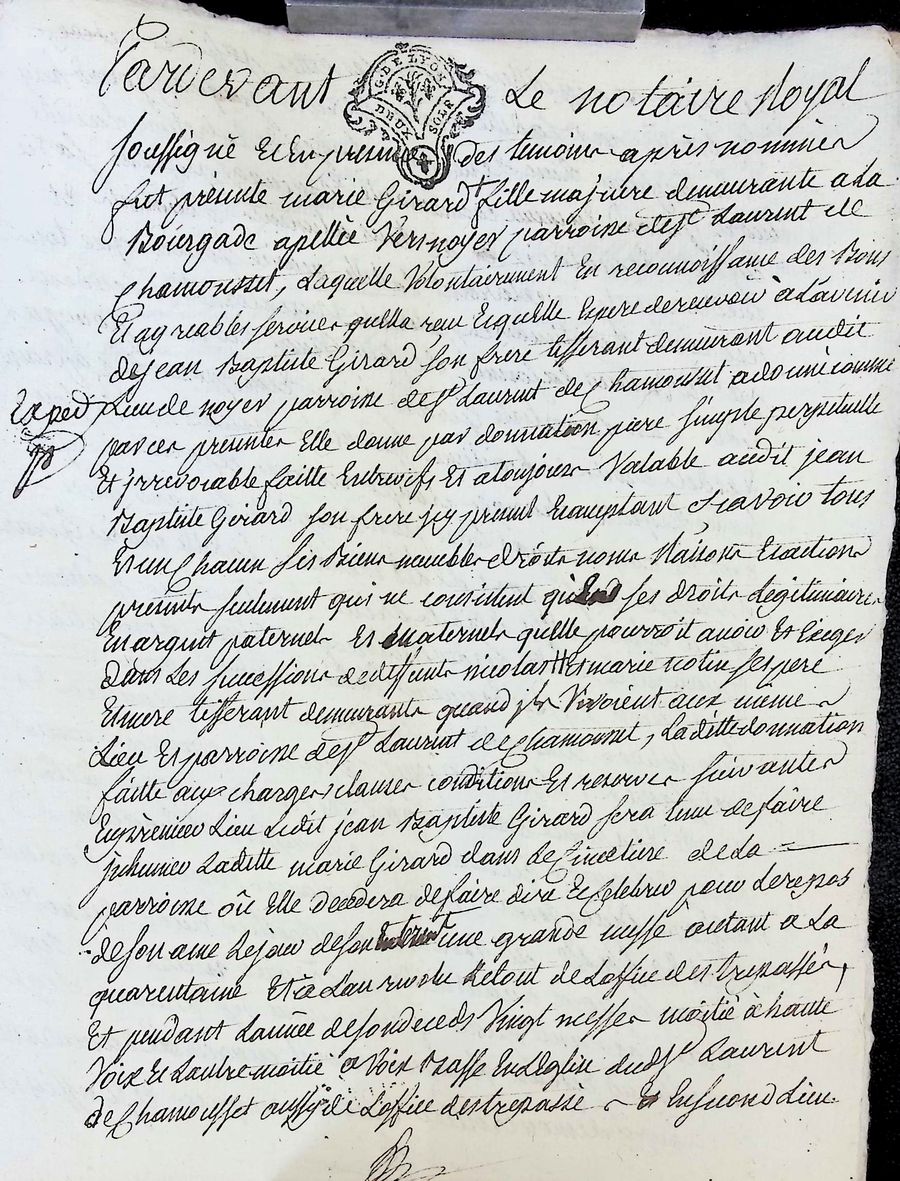 Pardevant Le notaire Royal
G. DE LYON
DEUX SOLS
soussigné Et En presence des temoins après nommés
fut présente marie Girard fille majeure demeurante a La
Bourgade apellée Vers noyer parroisse de st Laurent de
Chamousset, Laquelle Volontairement En reconnoissance des Bons
Et agreables services quelle a reçu Et quelle Espere de recevoir à L'avenir
de jean Baptiste Girard son frere tisserant demeurant audit
Exped
Lieu de noyer parroisse de st Laurent de Chamousset a donné comme
par ces presentes Elle donne par donnation pure simple perpetuelle
Et jrrevocable faitte Entrevifs Et atoujours Valable audit jean
Baptiste Girard son frere jcy present Et acceptant Scavoir tous
Et un Chacun ses Biens meubles droits noms Raisons Et actions
presents seulement qui ne consistent qu'en ses droits Legitimaires
En argent paternels Et maternels quelle pourroit avoir Et Exiger
dans Les successions de deffunts nicolas Et marie notin ses pere
Et mere tisserant demeurants quand jls Vivoient aux même
Lieu Et parroisse de st Laurent de Chamousset, La ditte donnation
faitte aux charges, clauses conditions Et reserves suivantes
En premier Lieu Ledit jean Baptiste Girard sera tenu de faire
jnhumer Laditte marie Girard dans Le Cimetiere de La
parroisse où Elle decedera de faire dire Et Celebrer pour Le repos
de son ame Le jour de son Enterrement une grande messe autant a La
quarentaine Et à L'anniversaire Le tout de L'office des trepassés,
Et pendant L'année de son deceds Vingt messes moitié à haute
Voix Et L'autre moitié a Voix Basse En L'Eglise dudit st Laurent
de Chamousset aussy de L'office des trepassés Et En second Lieu